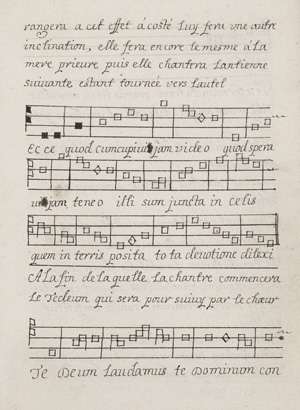 rangera a cet effet á costé Luy fera une autre
inclination, elle fera encore le mesme á La
mere prieure puis elle chantera Lantienne
suivante estant tournée vers Lautel
Ecce quod cum cupiui jam video quod spera
ui jam teneo illi sum juncta in celis
quem in terris posita tota deuotione dilexi
A La fin de laquelle La chantre commencera
Le Tedeum qui sera poursuiuy par le chœur
Te Deum Laudamus te Dominum con